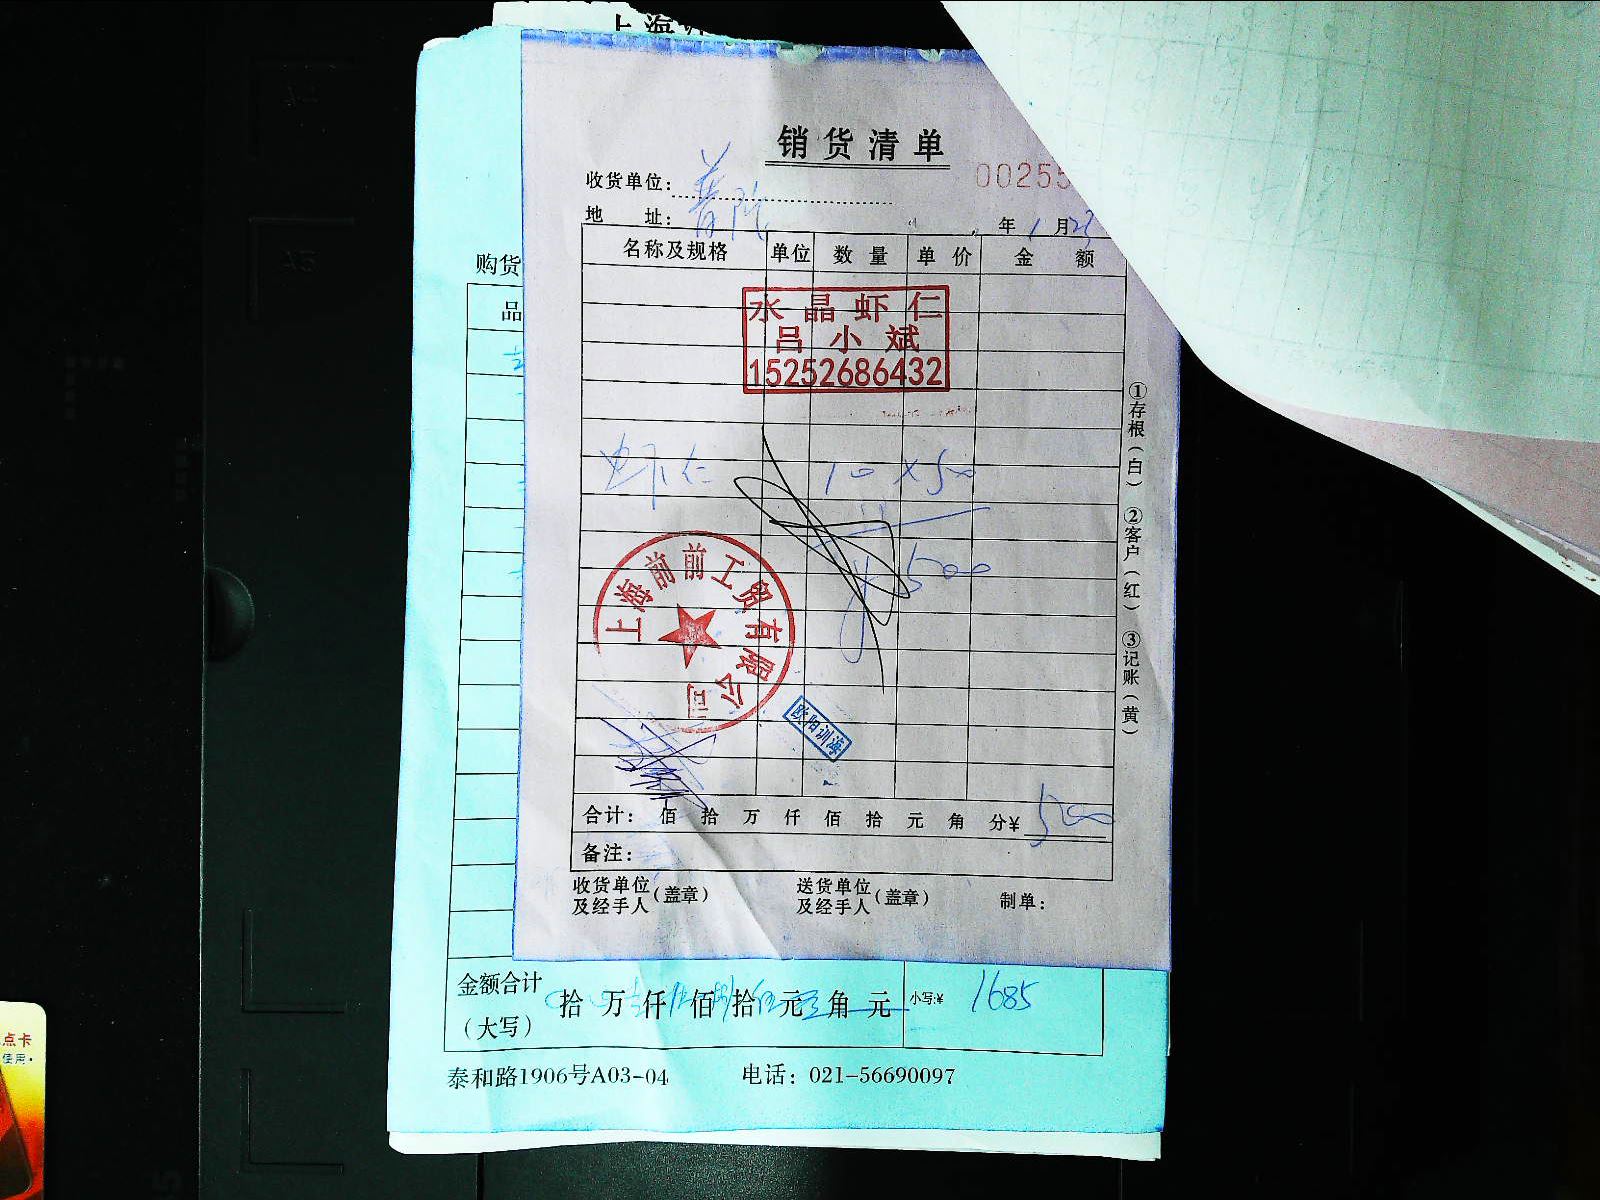 上海
销货清单
00255
收货单位：普陀
地 址：
年1月23
名称及规格 单位 数量 单价 金额
水晶虾仁
吕小斌
15252686432
虾仁 10×50
500
上海前前工贸有限公司
欧阳训海
合计： 佰 拾 万 仟 佰 拾 元 角 分¥ 500
备注：
收货单位及经手人（盖章） 送货单位及经手人（盖章） 制单：
①存根（白） ②客户（红） ③记账（黄）
购货
品
金额合计（大写） 拾 万 仟 佰 拾 元 角 元 小写:¥ 1685
泰和路1906号A03-04 电话：021-56690097
点卡
使用
A3